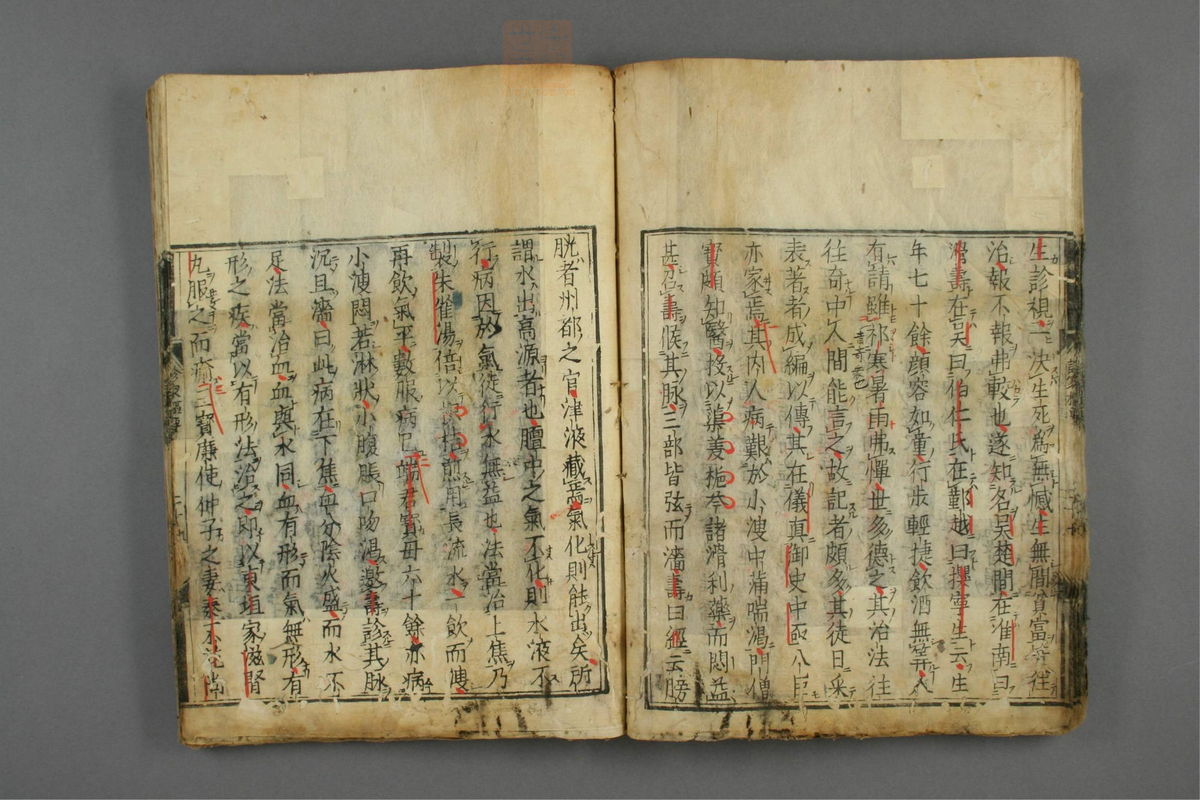 生診視一決生死為無憾生無間貧富皆往
治報不報弗較也遂知名吳楚間在淮南曰
滑壽在吳曰伯仁氏在鄞越曰攖寧生云生
年七十餘顏容如童行步輕捷飲酒無筭人
有請雖祁寒暑雨弗憚世多德之其治法往
往奇中人間能言之故記者頗多其徒日采
表著者成編以傳其在儀真御史中
亦家焉其內人病艱於小溲中滿喘渴門僧
寶頗知醫投以瞿麥梔苓諸滑利藥而悶益
甚召壽候其脉三部皆弦而濇壽曰經云膀
胱者州都之官津液藏焉氣化則能出矣所
謂水出高源者也膻中之氣不化則水液不
行病因於氣徒行水無益也法當治上焦乃
製朱雀湯倍以枳桔煎用長流水一飲而溲
再飲氣平數服病已 君寶母六十餘亦病
小溲悶若淋狀小腹脹口吻渴邀壽診其脉
沉且濇曰此病在下焦血分陰火盛而水不
足法當治血血與水同血有形而氣無形有
形之疾當以有形法治之即以東垣家滋腎
丸服之而瘉 三寶廉使仲子之妻 嘗